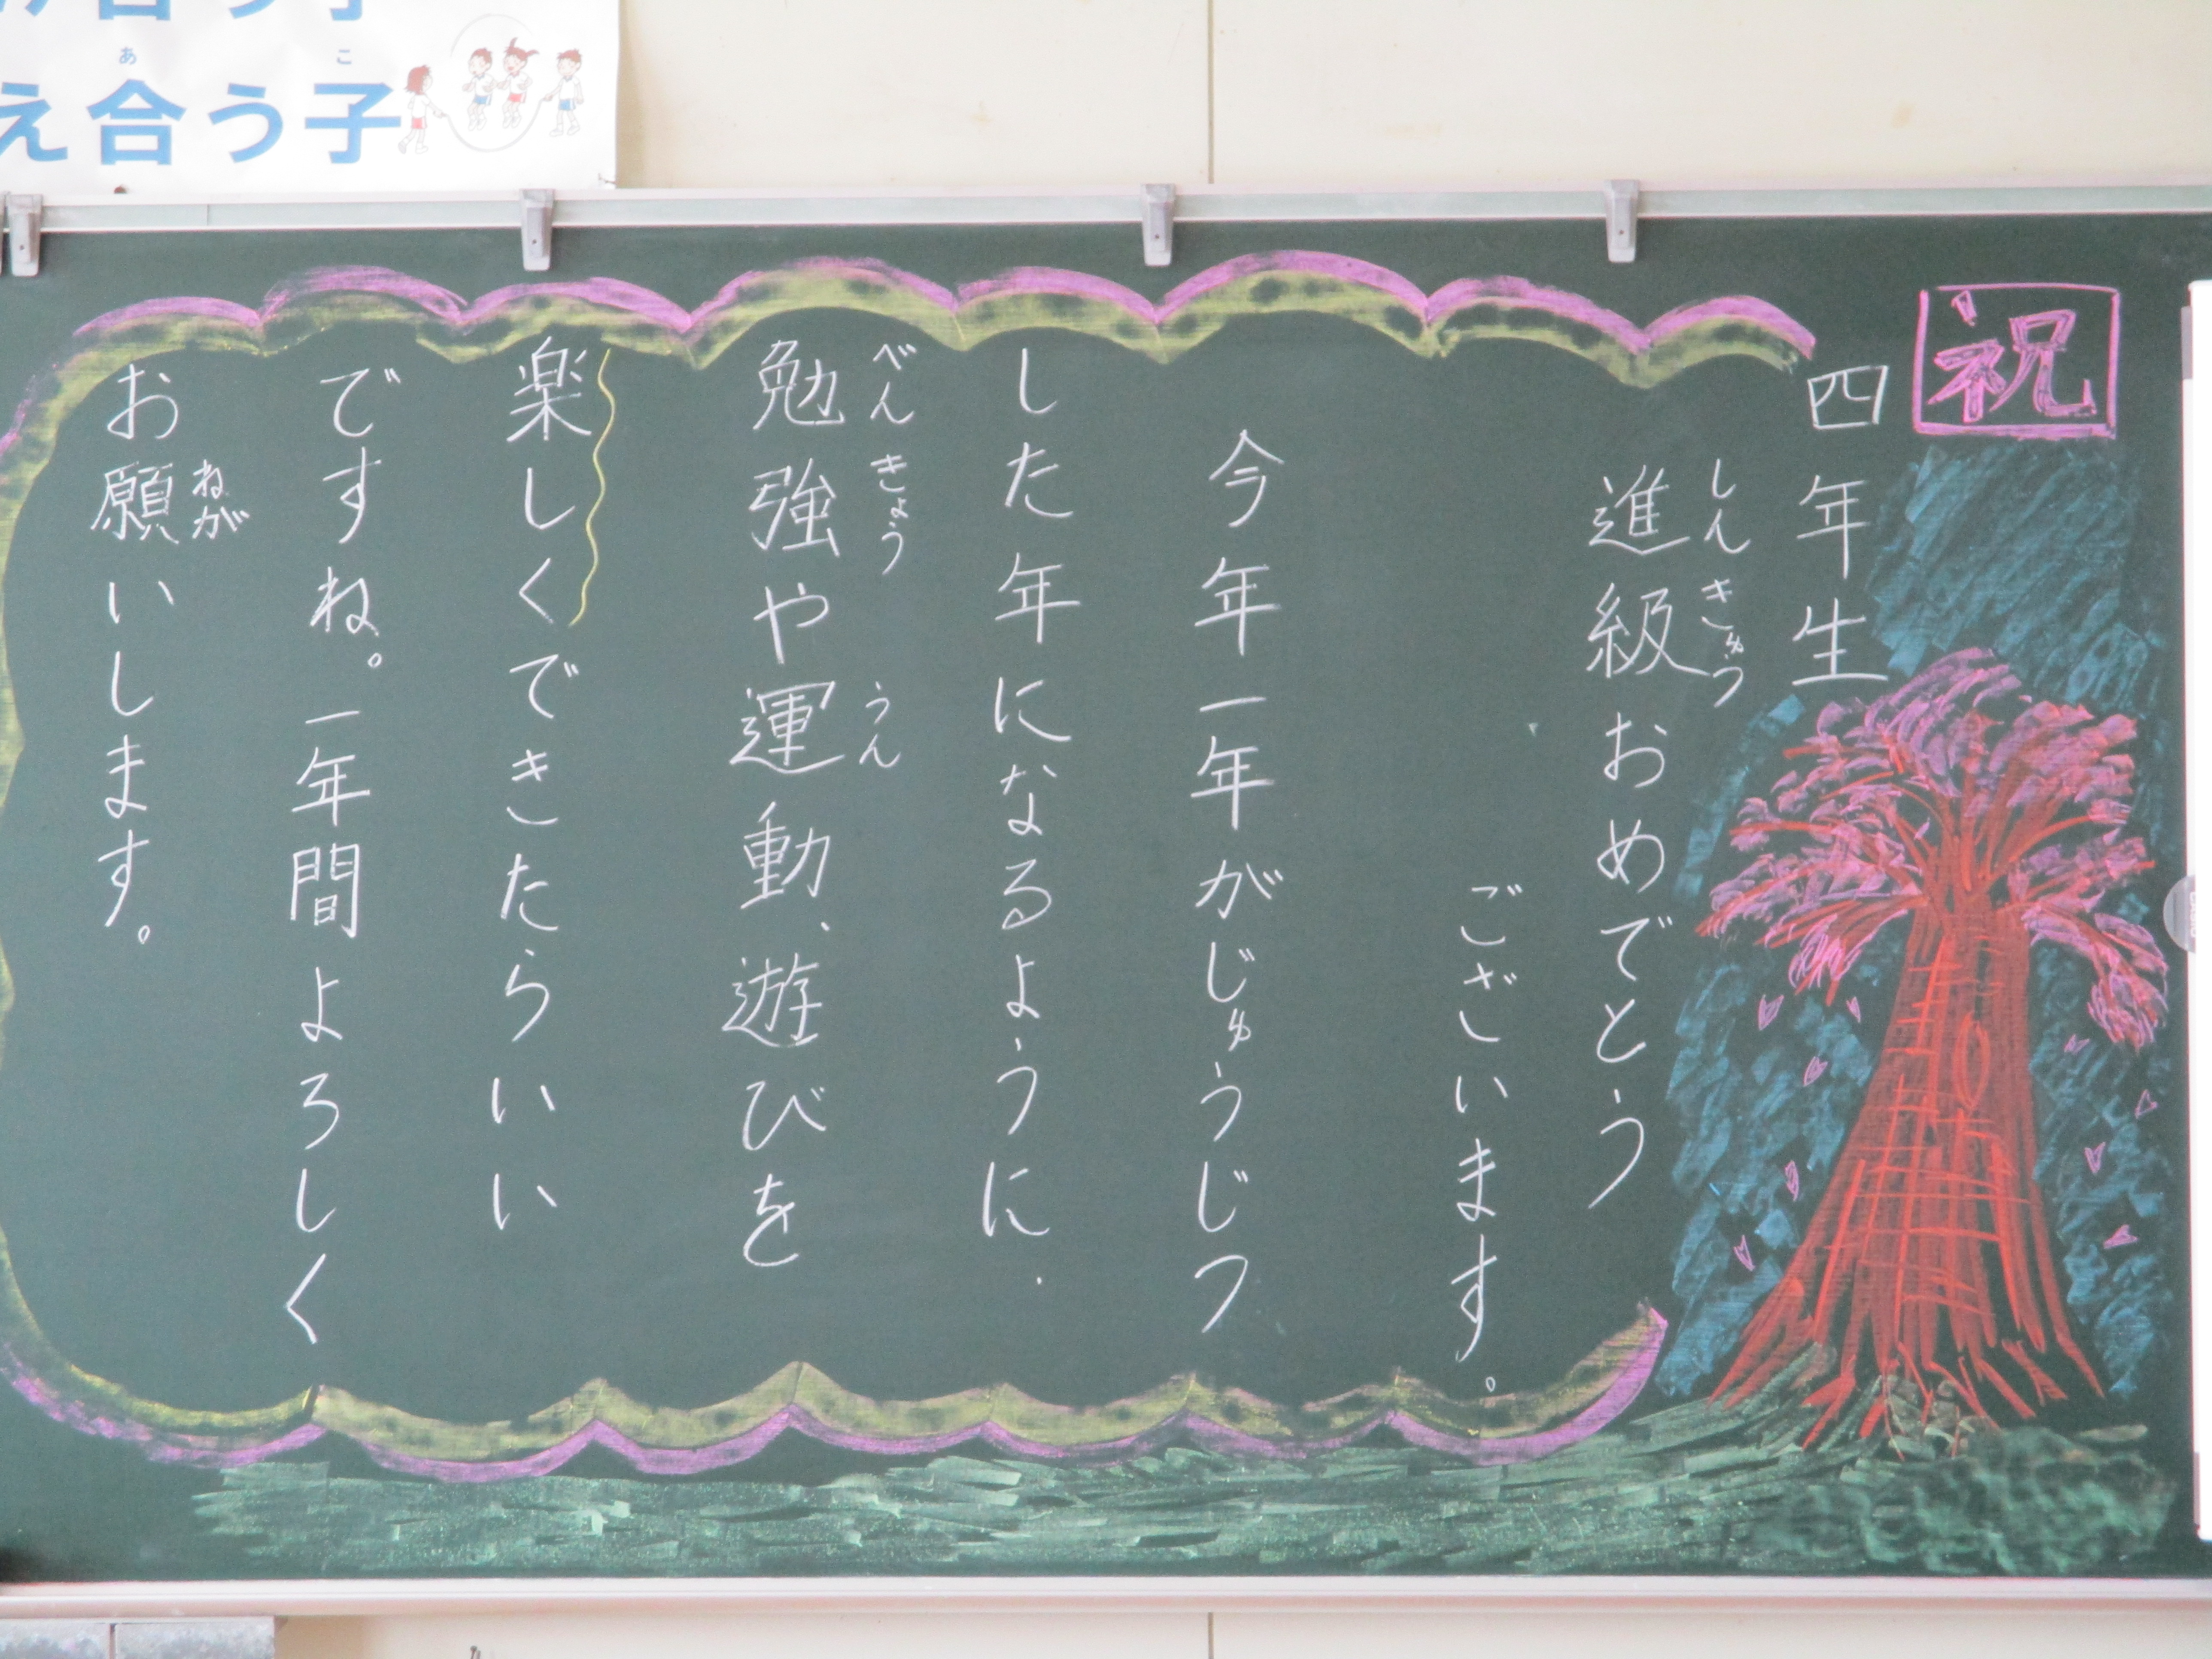 え合う子
あ
こ
祝
四年生
進級おめでとう
しんきゅう
ございます。
今年一年がじゅうじつ
した年になるように、
勉強や運動、遊びを
べんきょう
うん
楽しくできたらいい
ですね。一年間よろしく
お願いします。
ねが